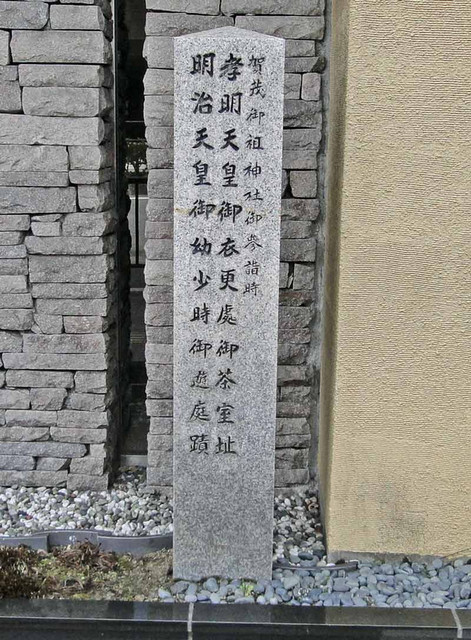 賀茂御祖神社御參詣時
孝明天皇御衣更處御茶室址
明治天皇御幼少時御遊庭蹟